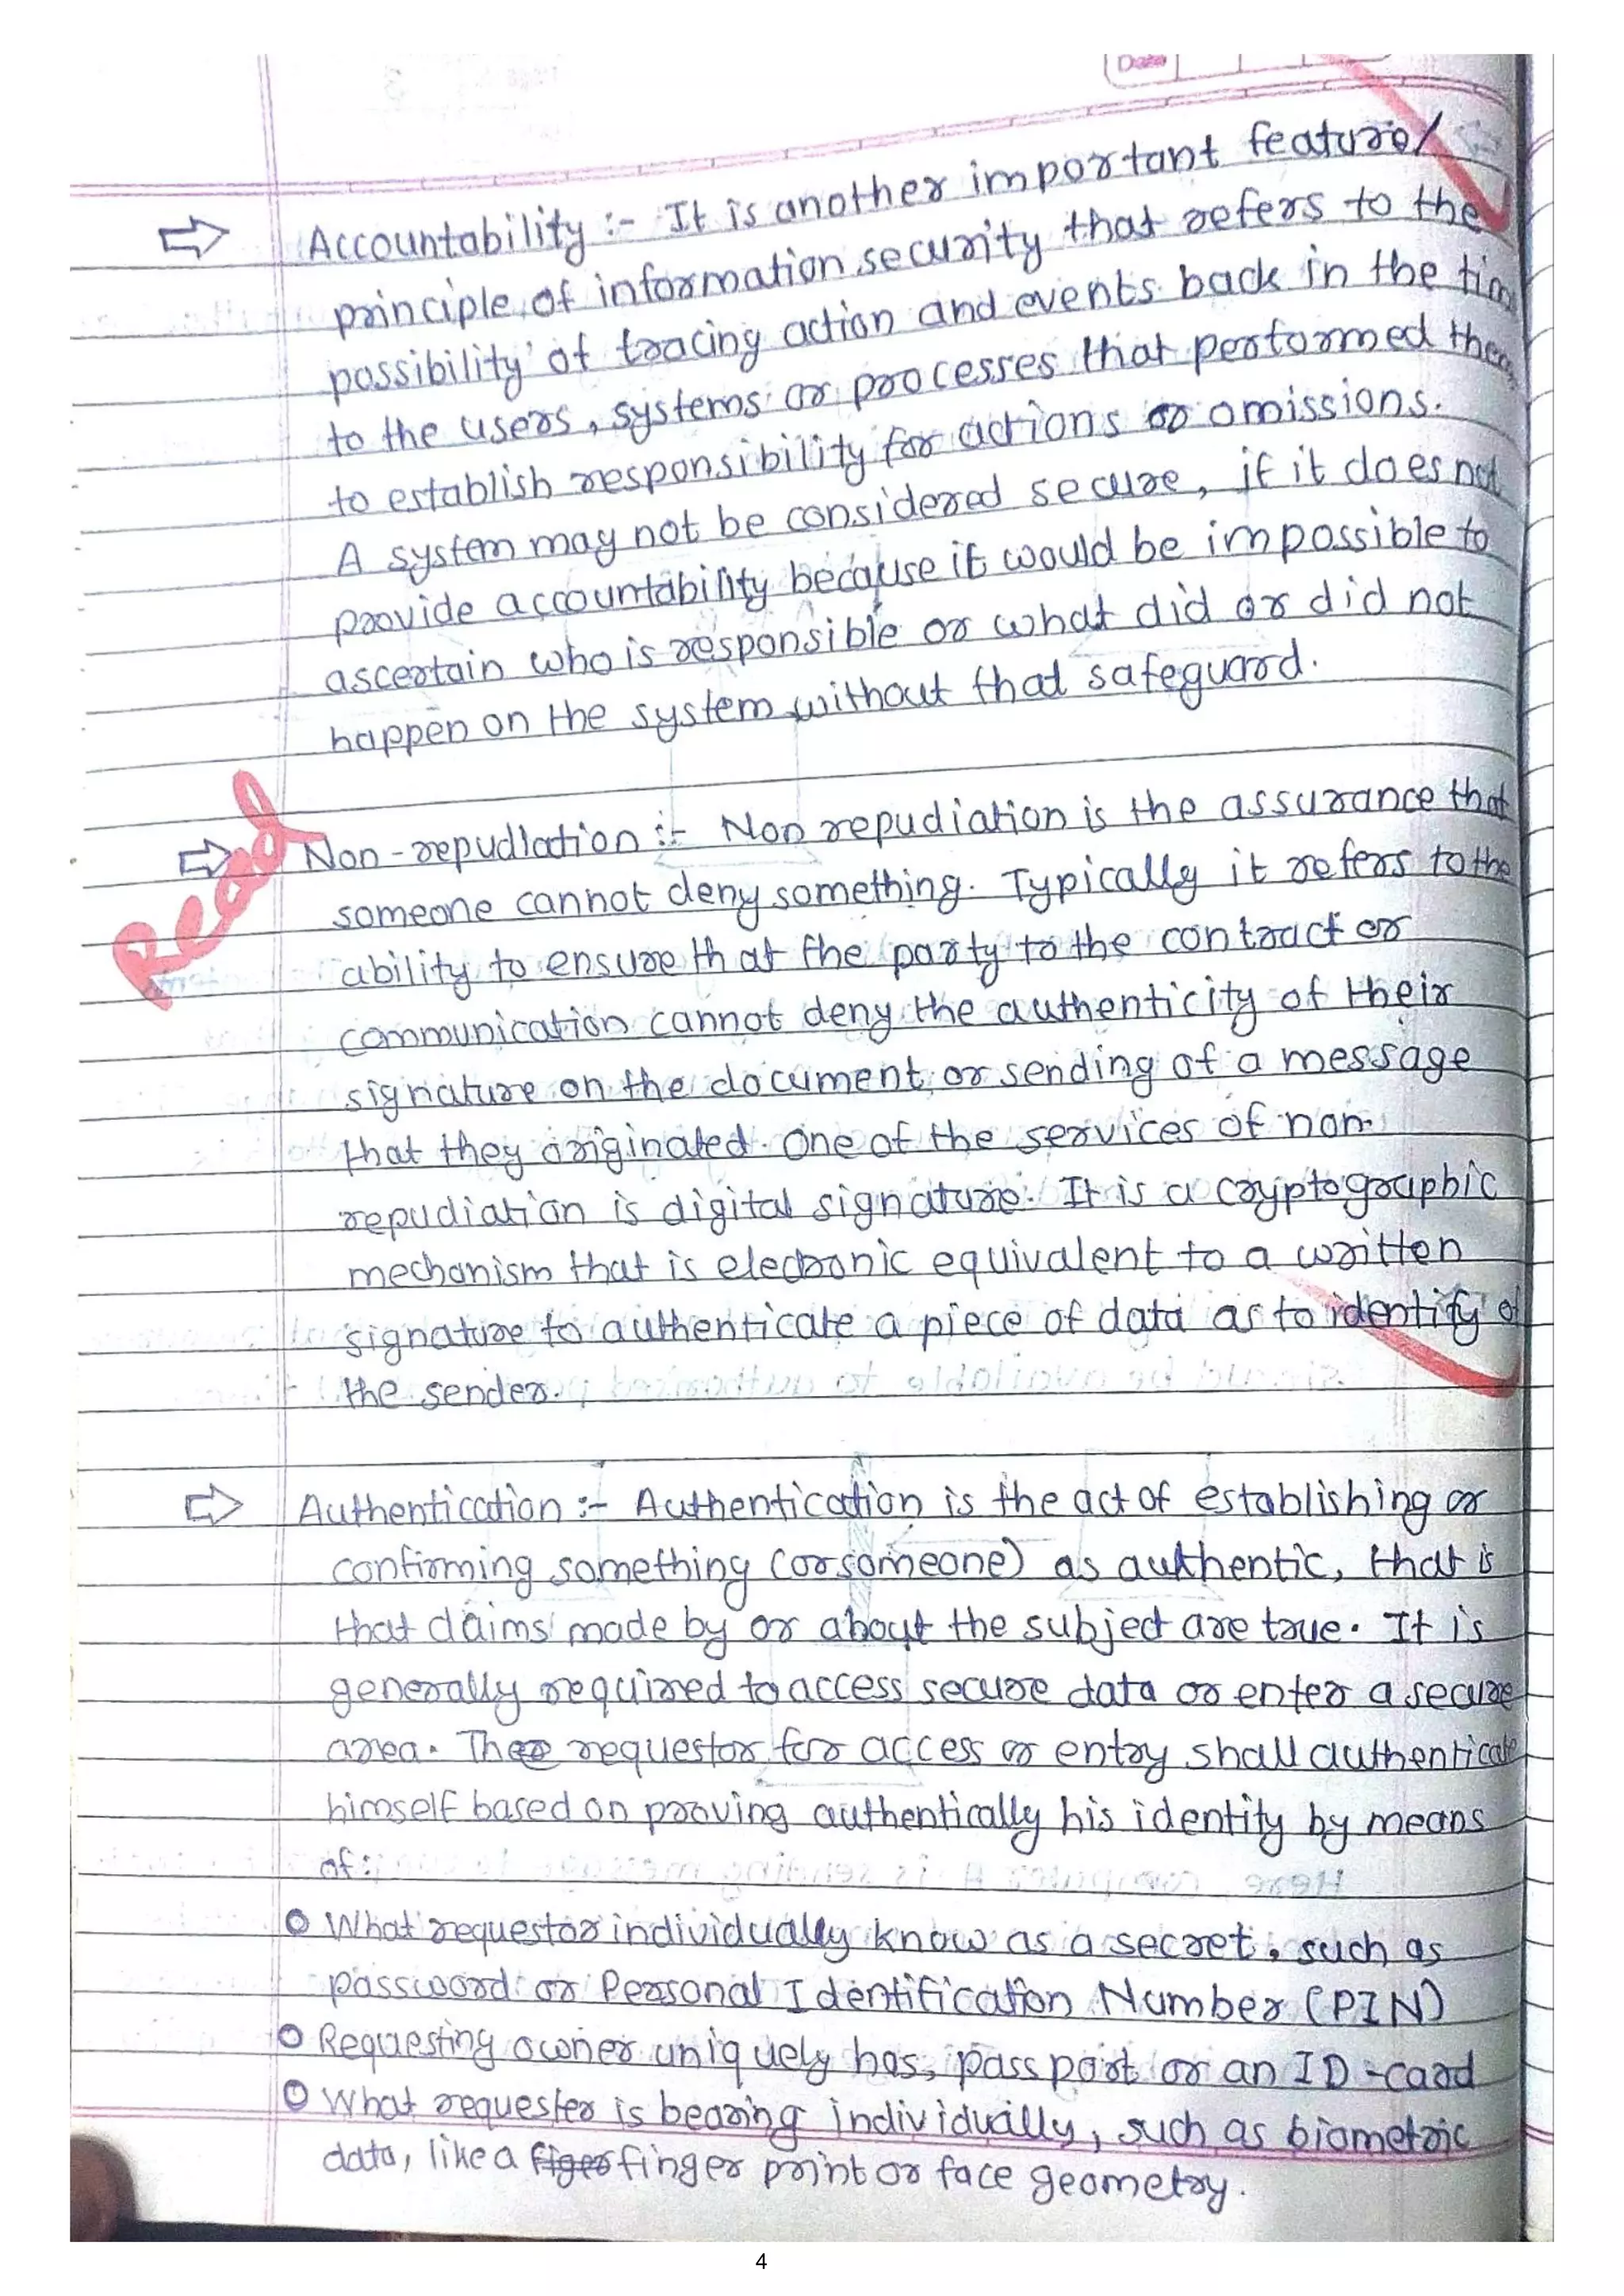 Date
⇒ Accountability :- It is another important feature/
principle of information security that refers to the
possibility of tracing action and events back in the time
to the users, systems or processes that performed them
to establish responsibility for actions or omissions.
A system may not be considered secure, if it does not
provide accountability because it would be impossible to
ascertain who is responsible or what did or did not
happen on the system without that safeguard.
Read
⇒ Non-repudiation :- Non repudiation is the assurance that
someone cannot deny something. Typically it refers to the
ability to ensure that the party to the contract or
communication cannot deny the authenticity of their
signature on the document or sending of a message
that they originated. One of the services of non-
repudiation is digital signature. It is a cryptographic
mechanism that is electronic equivalent to a written
signature to authenticate a piece of data as to identify of
the sender.
⇒ Authentication :- Authentication is the act of establishing or
confirming something (or someone) as authentic, that is
that claims made by or about the subject are true. It is
generally required to access secure data or enter a secure
area. The requestor for access or entry shall authenticate
himself based on proving authentically his identity by means
of:
o What requestor individually know as a secret, such as
password or Personal Identification Number (PIN)
o Requesting owner uniquely has, passport or an ID-card
o What requester is bearing individually, such as biometric
data, like a finger print or face geometry.
4